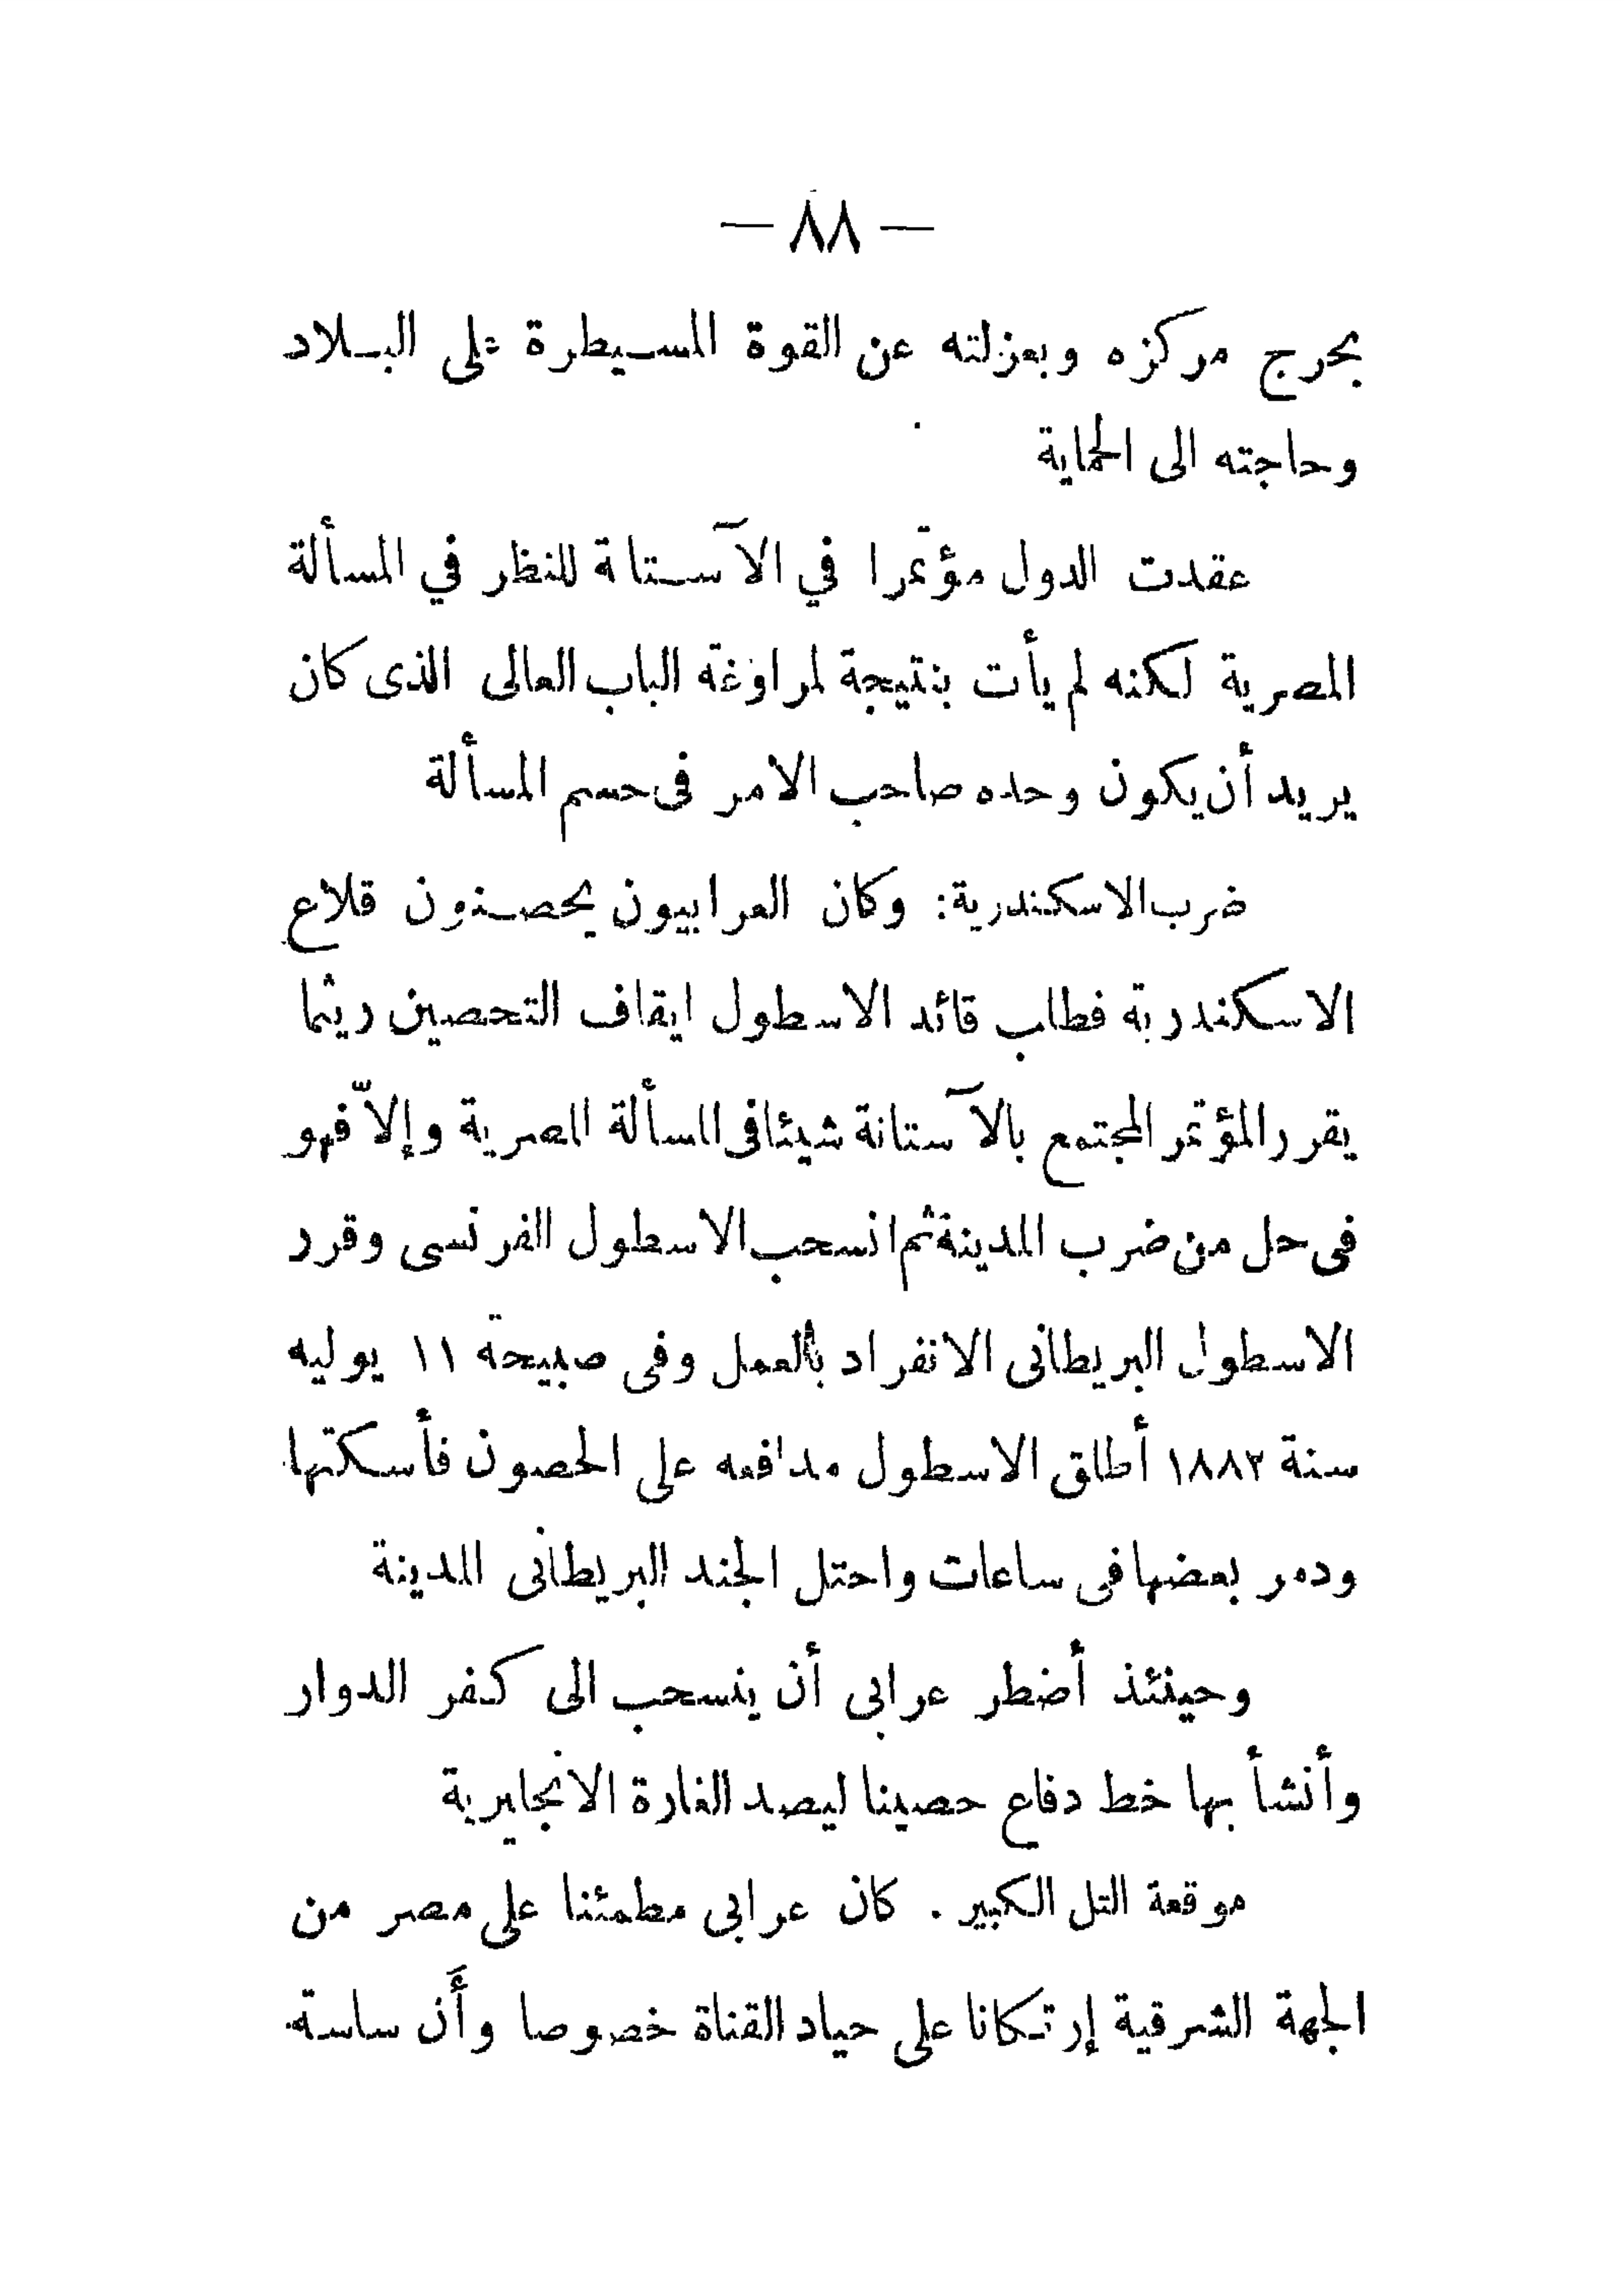 — ٨٨ —
بحرج مركزه وبعزلته عن القوة المسيطرة على البلاد
وحاجته الى الحماية
عقدت الدول مؤتمرا في الآستانة للنظر في المسألة
المصرية لكنه لم يأت بنتيجة لمراوغة الباب العالى الذى كان
يريد أن يكون وحده صاحب الامر فى حسم المسألة
ضرب الاسكندرية: وكان العرابيون يحصنون قلاع
الاسكندرية فطلب قائد الاسطول ايقاف التحصين ريثما
يقرر المؤتمر المجتمع بالآستانة شيئا فى المسألة المصرية وإلاّ فهو
فى حل من ضرب المدينة ثم انسحب الاسطول الفرنسى وقرر
الاسطول البريطانى الانفراد بالعمل وفى صبيحة ١١ يوليه
سنة ١٨٨٢ أطلق الاسطول مدافعه على الحصون فأسكتها
ودمر بعضها فى ساعات واحتل الجند البريطانى المدينة
وحينئذ أضطر عرابى أن ينسحب الى كفر الدوار
وأنشأ بها خط دفاع حصينا ليصد الغارة الانجليزية
موقعة التل الكبير . كان عرابى مطمئنا على مصر من
الجهة الشرقية إرتكانا على حياد القناة خصوصا وأَن ساسة